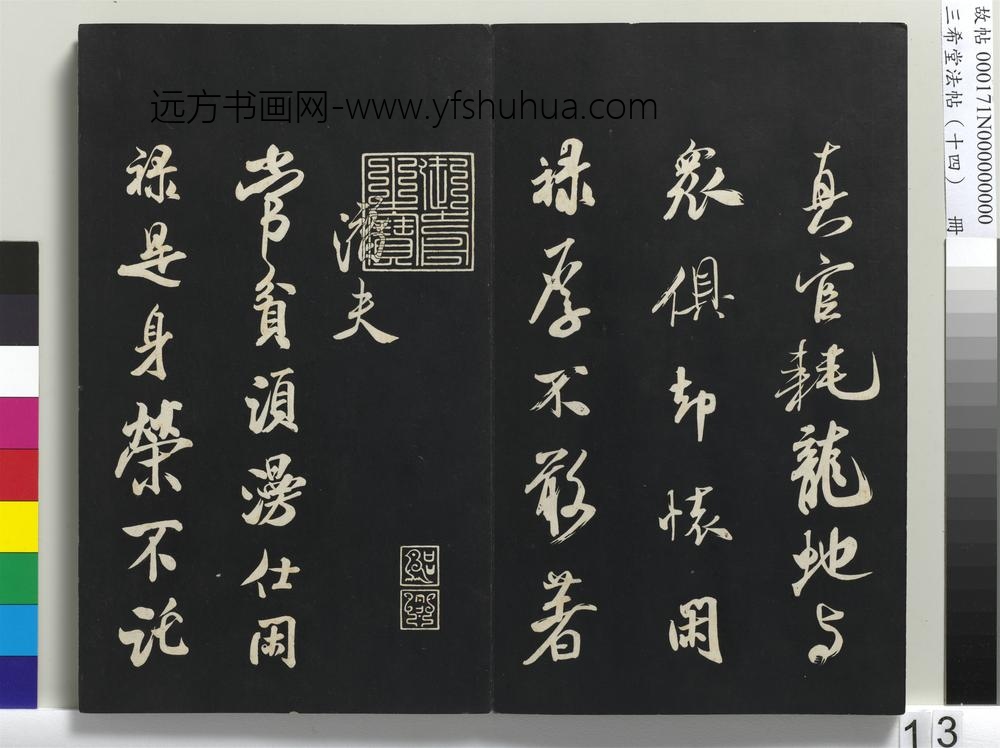 故帖 000171N000000000
三希堂法帖（十四） 册
远方书画网-www.yfshuhua.com
真官耗龍地与
衆俱却懷閑
禄厚不敢著
漫夫
常貧須漫仕閑
禄是身榮不託
13